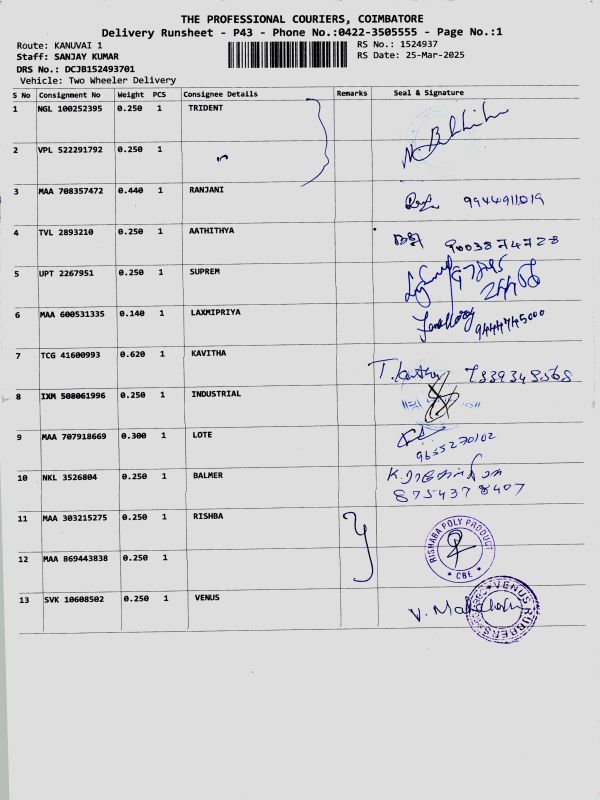 THE PROFESSIONAL COURIERS, COIMBATORE
Delivery Runsheet - P43 - Phone No.:0422-3505555 - Page No.:1
Route: KANUVAI 1
RS No.: 1524937
Staff: SANJAY KUMAR
RS Date: 25-Mar-2025
DRS No.: DCJB152493701
Vehicle: Two Wheeler Delivery
S No Consignment No Weight PCS Consignee Details Remarks Seal & Signature
1 NGL 100252395 0.250 1 TRIDENT
2 VPL 522291792 0.250 1
3 MAA 708357472 0.440 1 RANJANI
4 TVL 2893210 0.250 1 AATHITHYA 9003874728
5 UPT 2267951 0.250 1 SUPREM
6 MAA 600531335 0.140 1 LAXMIPRIYA
7 TCG 41600993 0.620 1 KAVITHA
8 IXM 508061996 0.250 1 INDUSTRIAL
9 MAA 707918669 0.300 1 LOTE 9655270102
10 NKL 3526804 0.250 1 BALMER
8754378407
11 MAA 303215275 0.250 1 RISHBA
RISHABA POLY PRODUCT
* CBE *
12 MAA 869443838 0.250 1
13 SVK 10608502 0.250 1 VENUS
VENUS RUBBERS